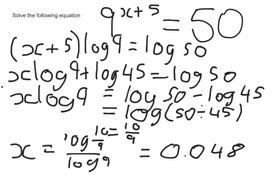 Solve the following equation
9^(x+5) = 50
(x+5)log9 = log50
xlog9 + log45 = log50
xlog9 = log50 - log45
= log(50÷45)
= 10/9
x = log 10/9 / log9 = 0.048